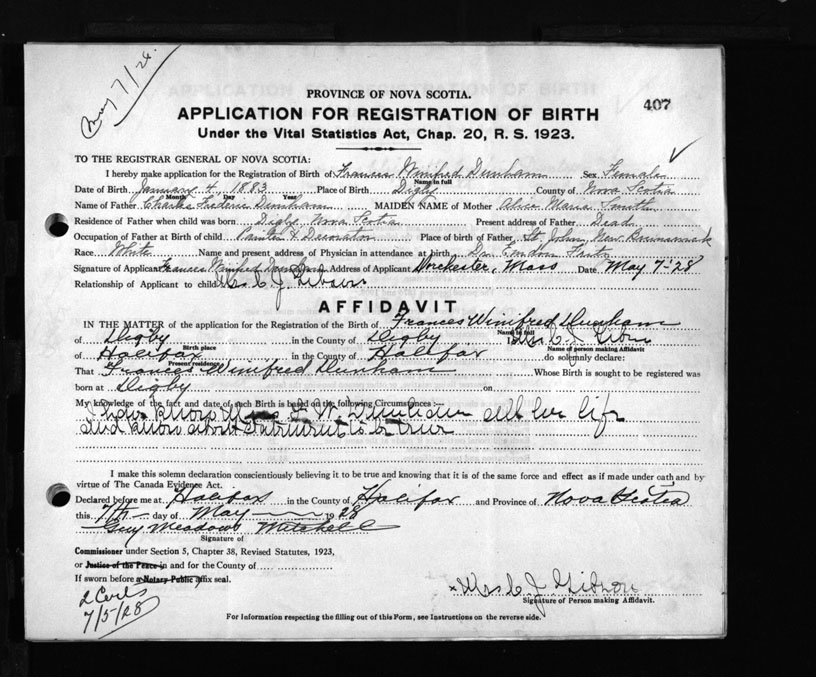 May 7/28
PROVINCE OF NOVA SCOTIA.
407
APPLICATION FOR REGISTRATION OF BIRTH
Under the Vital Statistics Act, Chap. 20, R. S. 1923.
TO THE REGISTRAR GENERAL OF NOVA SCOTIA:
I hereby make application for the Registration of Birth of Frances Winifred Dunham Sex Female
Name in full
Date of Birth January 4, 1883 Place of Birth Digby County of Nova Scotia
Month Day Year
Name of Father Charles Frederic Dunham MAIDEN NAME of Mother Alice Maria Smith
Residence of Father when child was born Digby Nova Scotia Present address of Father Dead
Occupation of Father at Birth of child Painter & Decorator Place of birth of Father St. John, New Brunswick
Race White Name and present address of Physician in attendance at birth Dr.
Signature of Applicant Frances Winifred Dunham Address of Applicant Dorchester, Mass Date May 7-'28
Relationship of Applicant to child Mrs C J Gibson
AFFIDAVIT
IN THE MATTER of the application for the Registration of the Birth of Frances Winifred Dunham
Name in full
of Digby in the County of Digby I Mrs C J Gibson
Birth place Name of person making Affidavit
of Halifax in the County of Halifax do solemnly declare:
Present residence
That Frances Winifred Dunham Whose Birth is sought to be registered was
born at Digby on
My knowledge of the fact and date of such Birth is based on the following Circumstances:—
I have known Miss F. W. Dunham all her life
and know above statement to be true
I make this solemn declaration conscientiously believing it to be true and knowing that it is of the same force and effect as if made under oath and by
virtue of The Canada Evidence Act.
Declared before me at Halifax in the County of Halifax and Province of Nova Scotia
this 7th day of May 1928
Guy Meadows Mitchell
Signature of
Commissioner under Section 5, Chapter 38, Revised Statutes, 1923,
or Justice of the Peace in and for the County of
If sworn before a Notary Public affix seal.
2 Certs
7/5/28
x Mrs C J Gibson
Signature of Person making Affidavit.
For Information respecting the filling out of this Form, see Instructions on the reverse side.